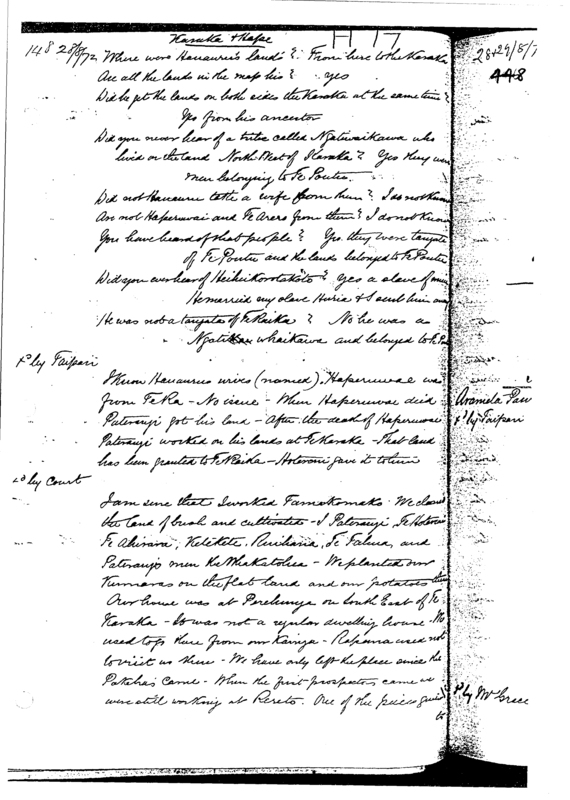 Karaka & Hape
H 17
148 28/8/72 Where were Hanauru's lands? From here to the Karaka
Are all the lands in the map his? yes
Did he get the lands on both sides the Karaka at the same time?
Yes from his ancestor
Did you never hear of a tribe called Ngatiwaikawa who
lived on the land North West of Karaka? Yes they were
men belonging to Te Poutu.
Did not Hanauru take a wife from them? I do not know
Are not Haperuwai and Te Arero from them? I do not know
You have heard of that people? Yes they were tangata
of Te Poutu and the lands belonged to Te Poutu
Did you ever hear of Heiheikorotokoto? yes a slave of mine
He married my slave Huria & I sent him away
He was not a tangata of Te Raika? No he was a
Ngati whaikawa and belonged to Te
xd by Taipari
I know Hanauru's wives (named). Haperuwae was
from Te Ra - No issue - When Haperuwae died
Paterangi got his land - After the death of Haperuwae
Paterangi worked on his lands at Te Karaka - That land
has been granted to Te Raika - Hotereni gave it to him
xd by Court
I am sure that I worked Tamakomako. We cleared
the land of bush and cultivated - I Paterangi, Te Hotereni
Te Ahiraira, Keteketi, Ruihana, Te Tahua, and
Paterangi men the Whakatohea - We planted our
Kumaras on the flat land and our potatoes there
Our house was at Parehunga on South East of Te
Karaka - It was not a regular dwelling house - We
used to go there from our Kainga - Rapana used not
to visit us there - We have only left the place since the
Pakehas came - When the first prospectors came we
were still working at Rereto. One of the
28 & 29/8/7
448
Aramela Pau
xd by Taipari
xd by Mr Grace